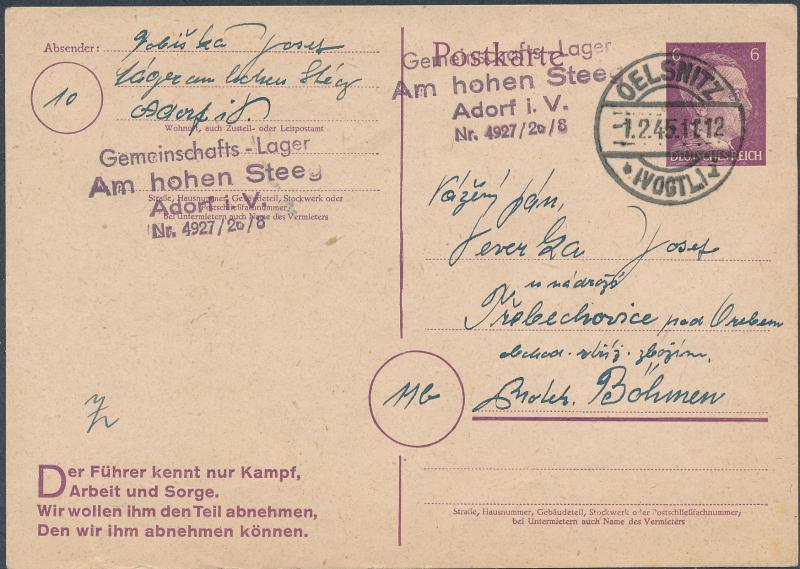 Absender: Josef
Lager am hohen Steeg
10
Adorf i. V.
Wohnort, auch Zustell- oder Leitpostamt
Gemeinschafts-Lager
Am hohen Steeg
Adorf i. V.
Nr. 4927/2o/8
Straße, Hausnummer, Gebäudeteil, Stockwerk oder
Postschließfachnummer;
bei Untermietern auch Name des Vermieters
Der Führer kennt nur Kampf,
Arbeit und Sorge.
Wir wollen ihm den Teil abnehmen,
Den wir ihm abnehmen können.
Postkarte
Gemeinschafts-Lager
Am hohen Steeg
Adorf i. V.
Nr. 4927/2o/8
6 6
DEUTSCHES REICH
OELSNITZ
1.2.45.11-12
(VOGTL)
Vážený pán,
Josef
u nádraží
Třebechovice pod Orebem
obchod. zbožím.
11b
Protek. Böhmen
Straße, Hausnummer, Gebäudeteil, Stockwerk oder Postschließfachnummer;
bei Untermietern auch Name des Vermieters